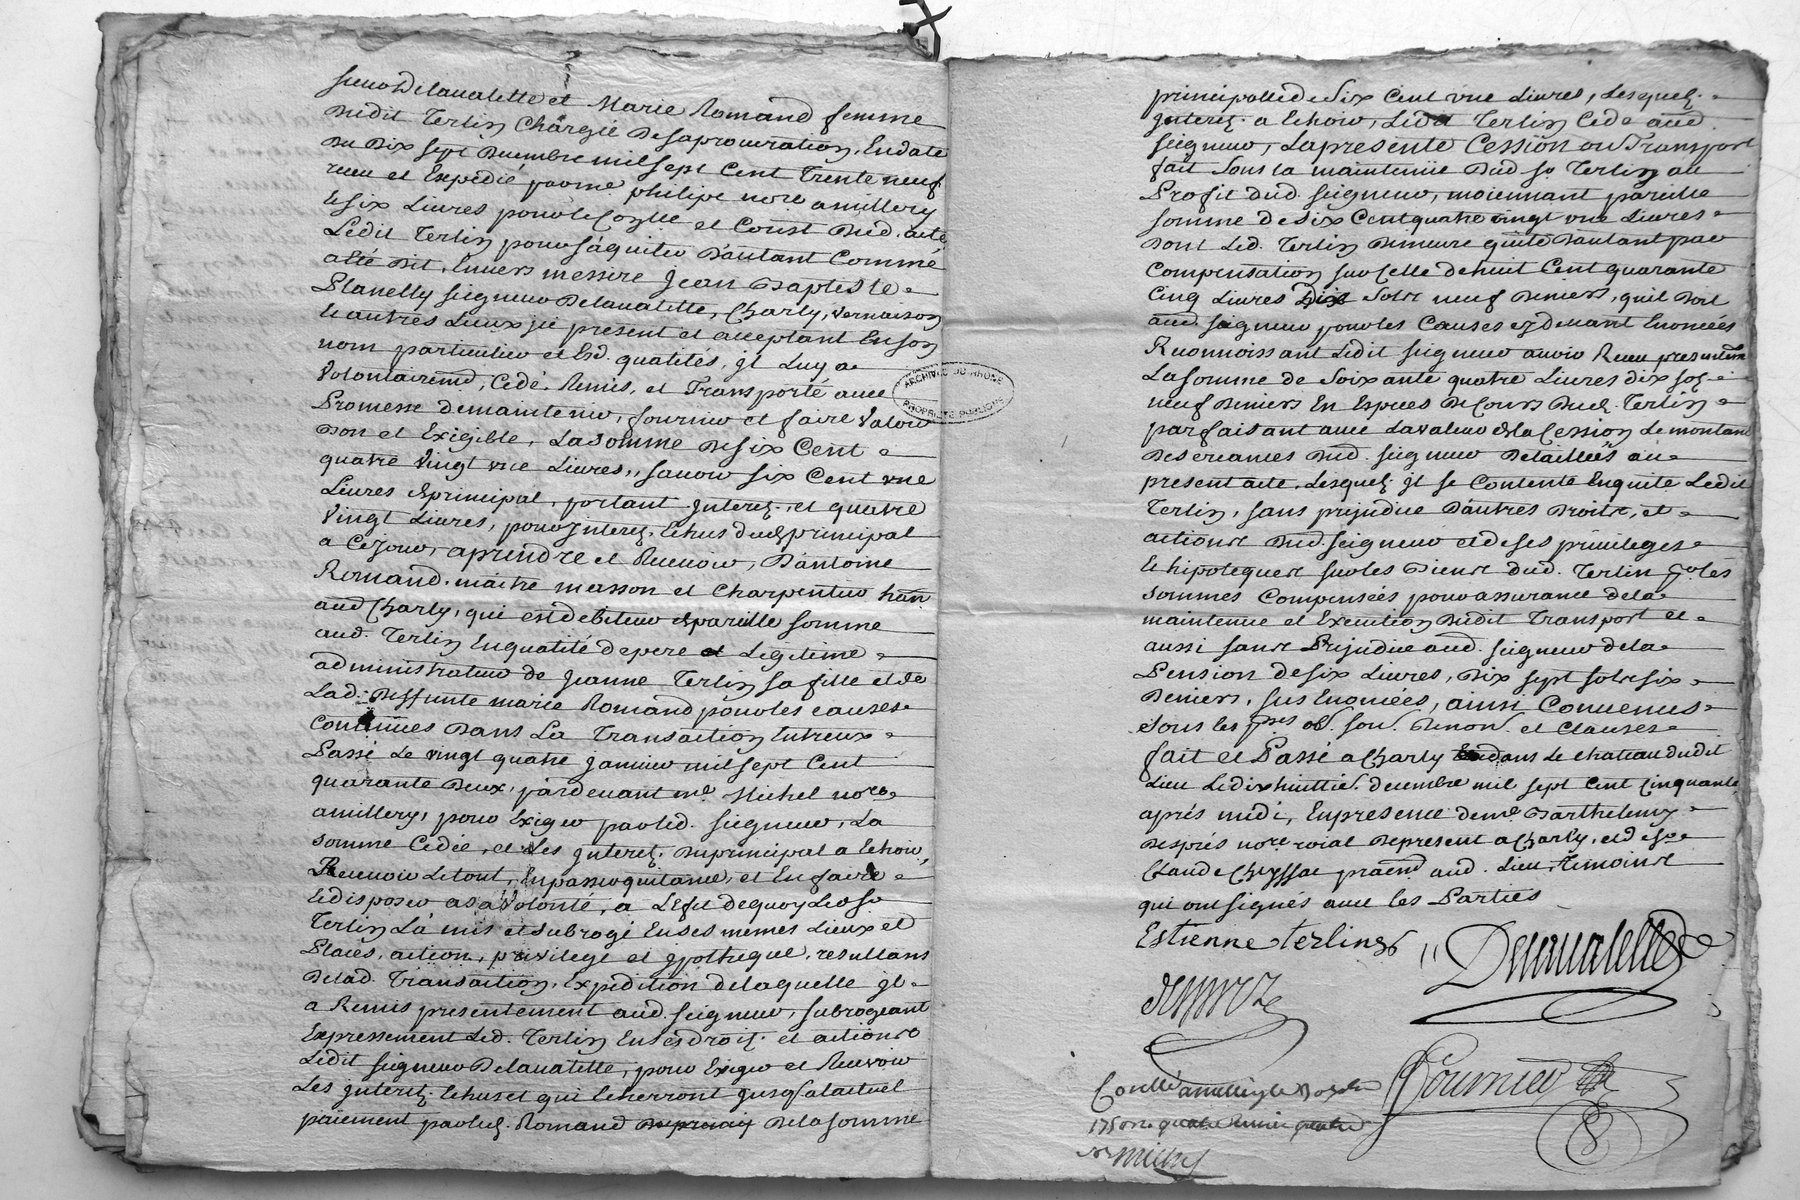 sieur Delavalette et Marie Romand femme
Dudit Terlin Chargié De sa procuration, En date
Du Dix sept Decembre mil sept Cent Trente neuf
receu et Expedié par me philipe nore a millery
Et six Livres pour le Conlle et Const Dud. acte,
Ledit Terlin pour s'aquiter D'autant Comme
a été Dit, Envers messire Jean Baptiste
Planelly seigneur Delavalette, Charly, vernaison
Et autres Lieux jci present et acceptant En son
nom particulier et Esd. qualités, jl Luy a
Volontairemt, Cedé, Remis, et Transporté avec
Promesse de maintenir, fournir et faire Valoir
Bon et Exigible, La somme De six Cent
quatre Vingt une Livres, savoir six Cent une
Livres de principal, portant jnterez. et quatre
Vingt Livres, pour jnterez. Echus dud principal
a Ce jour, a prendre et Recevoir, D'antoine
Romand. maitre masson et Charpentier han
aud Charly, qui est debiteur de pareille somme
aud. Terlin En qualité de pere et Legitime
administrateur de Jeanne Terlin sa fille et de
Lad. Deffunte marie Romand pour les causes
Contenues Dans La Transaction Entreux
Passé Le vingt quatre janvier mil sept Cent
quarante Deux, pardevant me Michel nore
a millery, pour Exiger par led. seigneur, La
somme Cedée, et Les jnterez. Du principal a Echoir,
Recevoir Le tout, En passer quitance, et En faire
Et disposer a sa Volonté, a L'Efet de quoy Led sr
Terlin L'a mis et subrogé En ses memes Lieux et
Places, action, privilege et jpotheque, resultans
De lad. Transaction, Expedition de laquelle jl
a Remis presentement aud. seigneur, subrogeant
Expressement Led. Terlin En ses droiz. et actions
Ledit seigneur Delavalette, pour Exiger et Recevoir
Les jnterez. Echus et qui Echerront jusqa l'actuel
paiement par led. Romand De la somme
principalle de Six Cent une Livres, Lesquelz
jnterez. a Echoir, Ledit Terlin Cede aud.
seigneur, La presente Cession ou Transport
fait sous la maintenüe Dud sr Terlin au
Profit dud. seigneur, moiennant pareille
somme de six Cent quatre vingt une Livres
Dont Led. Terlin Demeure quitte D'autant par
Compensation sur Celle de huit Cent quarante
Cinq Livres Dix sols neuf Deniers, qu'il Doit
aud. seigneur pour les Causes cy devant Enoncées
Reconnoissant Ledit seigneur avoir Receu presentemt
La somme de Soixante quatre Livres dix solz
neuf Deniers En Especes De Cours Dud. Terlin
parfaisant avec La valeur de la Cession Le montant
Des creances Dud. seigneur Detaillées au
present acte, Lesquelz jl se Contente En quitte Ledit
Terlin, sans prejudice D'autres Droits, et
actions Dud. seigneur et de ses privileges
Et hipoteques sur les Biens dud. Terlin pr les
sommes Compensées pour assurance de la
maintenue et Execution Dudit Transport et
aussi sans Prejudice aud. seigneur de la
Pension de six Livres, Dix sept sols six
Deniers, sus Enoncées, ainsi Convenus
Sous les pnes obl. soum. Renon. et Clauses
fait et Passé a Charly dans Le chateau dudit
Lieu Le dix huittie. decembre mil sept Cent Cinquante,
après midi, En presence de me Barthelemy
Després nore roial De present a Charly, et de sr
Claude Cheyssac praend aud. Lieu, Temoins
qui ont signés avec les Parties
Estienne terling Delavalette
despréz
Fournier
Conllé a millery le
1750 quatre
michel
ARCHIVES DU RHÔNE
PROPRIÉTÉ PUBLIQUE